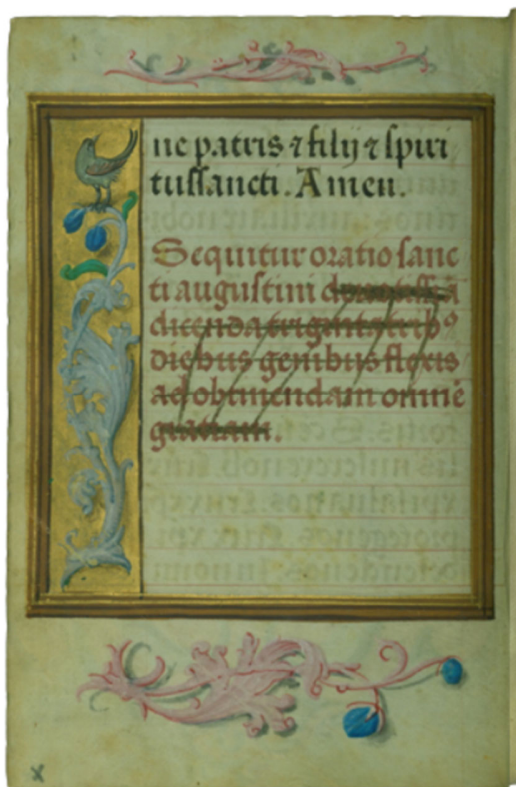 ne patris ⁊ filij ⁊ spiri
tussancti. Amen.
Sequitur oratio sanc
ti augustini deuotissi ā
dicenda triginta trib⁹
diebus genibus flexis
ad obtinendam omnē
gratiam.
x